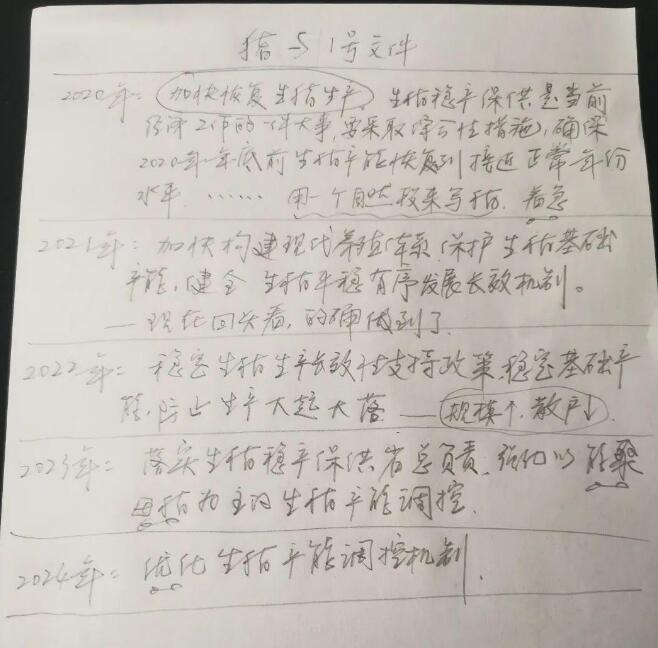 猪与1号文件
2020年：加快恢复生猪生产，生猪稳产保供是当前
经济工作的一件大事，要采取综合性措施，确保
2020年年底前生猪产能恢复到接近正常年份
水平。……用一个自然段来写猪。着急
2021年：加快构建现代养殖体系，保护生猪基础
产能，健全生猪平稳有序发展长效机制。
——现在回头看，的确做到了。
2022年：稳定生猪生产长效性支持政策，稳定基础产
能，防止生产大起大落——规模↑，散户↓
2023年：落实生猪稳产保供省总负责，强化以能繁
母猪为主的生猪产能调控。
2024年：优化生猪产能调控机制。